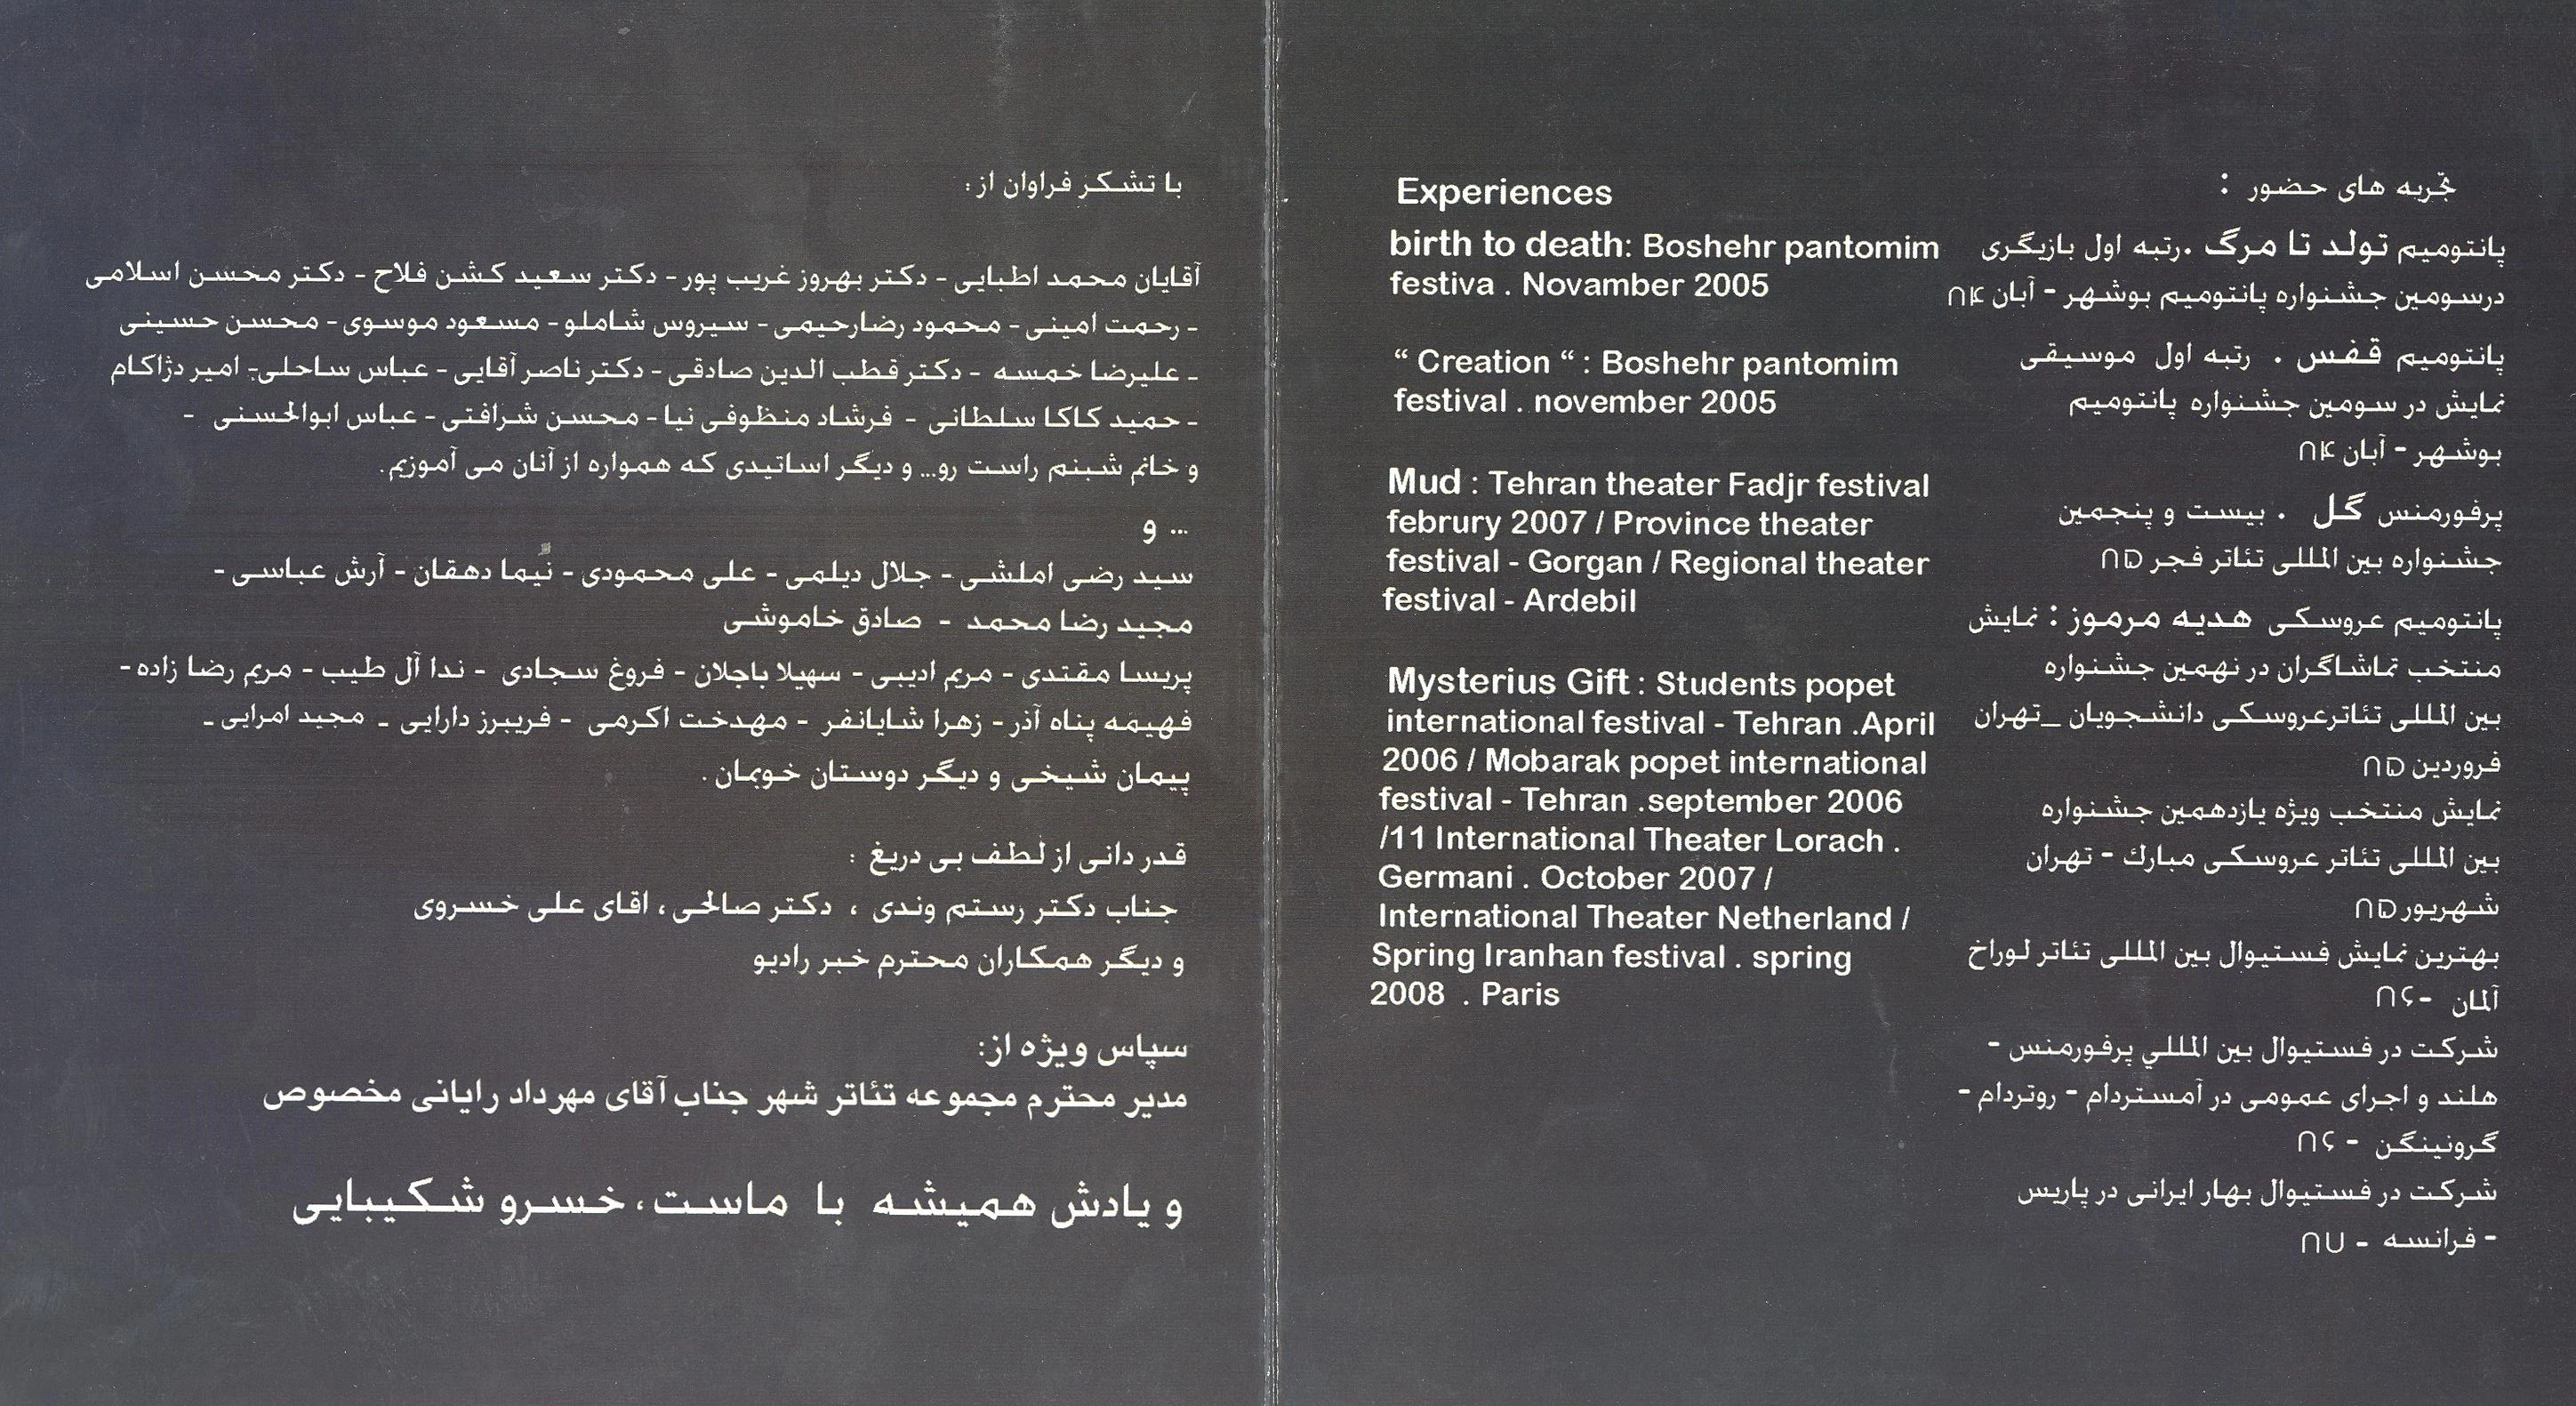 با تشکر فراوان از:
آقایان محمد اطبایی - دکتر بهروز غریب پور - دکتر سعید کشن فلاح - دکتر محسن اسلامی
- رحمت امینی - محمود رضارحیمی - سیروس شاملو - مسعود موسوی - محسن حسینی
- علیرضا خمسه - دکتر قطب الدین صادقی - دکتر ناصر آقایی - عباس ساحلی - امیر دژاکام
- حمید کاکا سلطانی - فرشاد منظوفی نیا - محسن شرافتی - عباس ابوالحسنی -
و خانم شبنم راست رو... و دیگر اساتیدی که همواره از آنان می آموزیم.
... و
سید رضی املشی - جلال دیلمی - علی محمودی - نیما دهقان - آرش عباسی -
مجید رضا محمد - صادق خاموشی
پریسا مقتدی - مریم ادیبی - سهیلا باجلان - فروغ سجادی - ندا آل طیب - مریم رضا زاده -
فهیمه پناه آذر - زهرا شایانفر - مهدخت اکرمی - فریبرز دارایی - مجید امرایی -
پیمان شیخی و دیگر دوستان خوبمان .
قدر دانی از لطف بی دریغ :
جناب دکتر رستم وندی ، دکتر صالحی، اقای علی خسروی
و دیگر همکاران محترم خبر رادیو
سپاس ویژه از:
مدیر محترم مجموعه تئاتر شهر جناب آقای مهرداد رایانی مخصوص
و یادش همیشه با ماست، خسرو شکیبایی
Experiences
birth to death: Boshehr pantomim
festiva . Novamber 2005
“ Creation “ : Boshehr pantomim
festival . november 2005
Mud : Tehran theater Fadjr festival
februry 2007 / Province theater
festival - Gorgan / Regional theater
festival - Ardebil
Mysterius Gift : Students popet
international festival - Tehran .April
2006 / Mobarak popet international
festival - Tehran .september 2006
/11 International Theater Lorach .
Germani . October 2007 /
International Theater Netherland /
Spring Iranhan festival . spring
2008 . Paris
تجربه های حضور :
پانتومیم تولد تا مرگ .رتبه اول بازیگری
درسومین جشنواره پانتومیم بوشهر - آبان ۸۴
پانتومیم قفس . رتبه اول موسیقی
نمایش در سومین جشنواره پانتومیم
بوشهر - آبان ۸۴
پرفورمنس گل . بیست و پنجمین
جشنواره بین المللی تئاتر فجر ۸۵
پانتومیم عروسکی هدیه مرموز : نمایش
منتخب تماشاگران در نهمین جشنواره
بین المللی تئاترعروسکی دانشجویان _تهران
فروردین ۸۵
نمایش منتخب ویژه یازدهمین جشنواره
بین المللی تئاتر عروسکی مبارك - تهران
شهریور۸۵
بهترین نمایش فستیوال بین المللی تئاتر لوراخ
آلمان -۸۶
شرکت در فستیوال بین المللي پرفورمنس -
هلند و اجرای عمومی در آمستردام - روتردام -
گرونینگن - ۸۶
شرکت در فستیوال بهار ایرانی در پاریس
- فرانسه - ۸۷